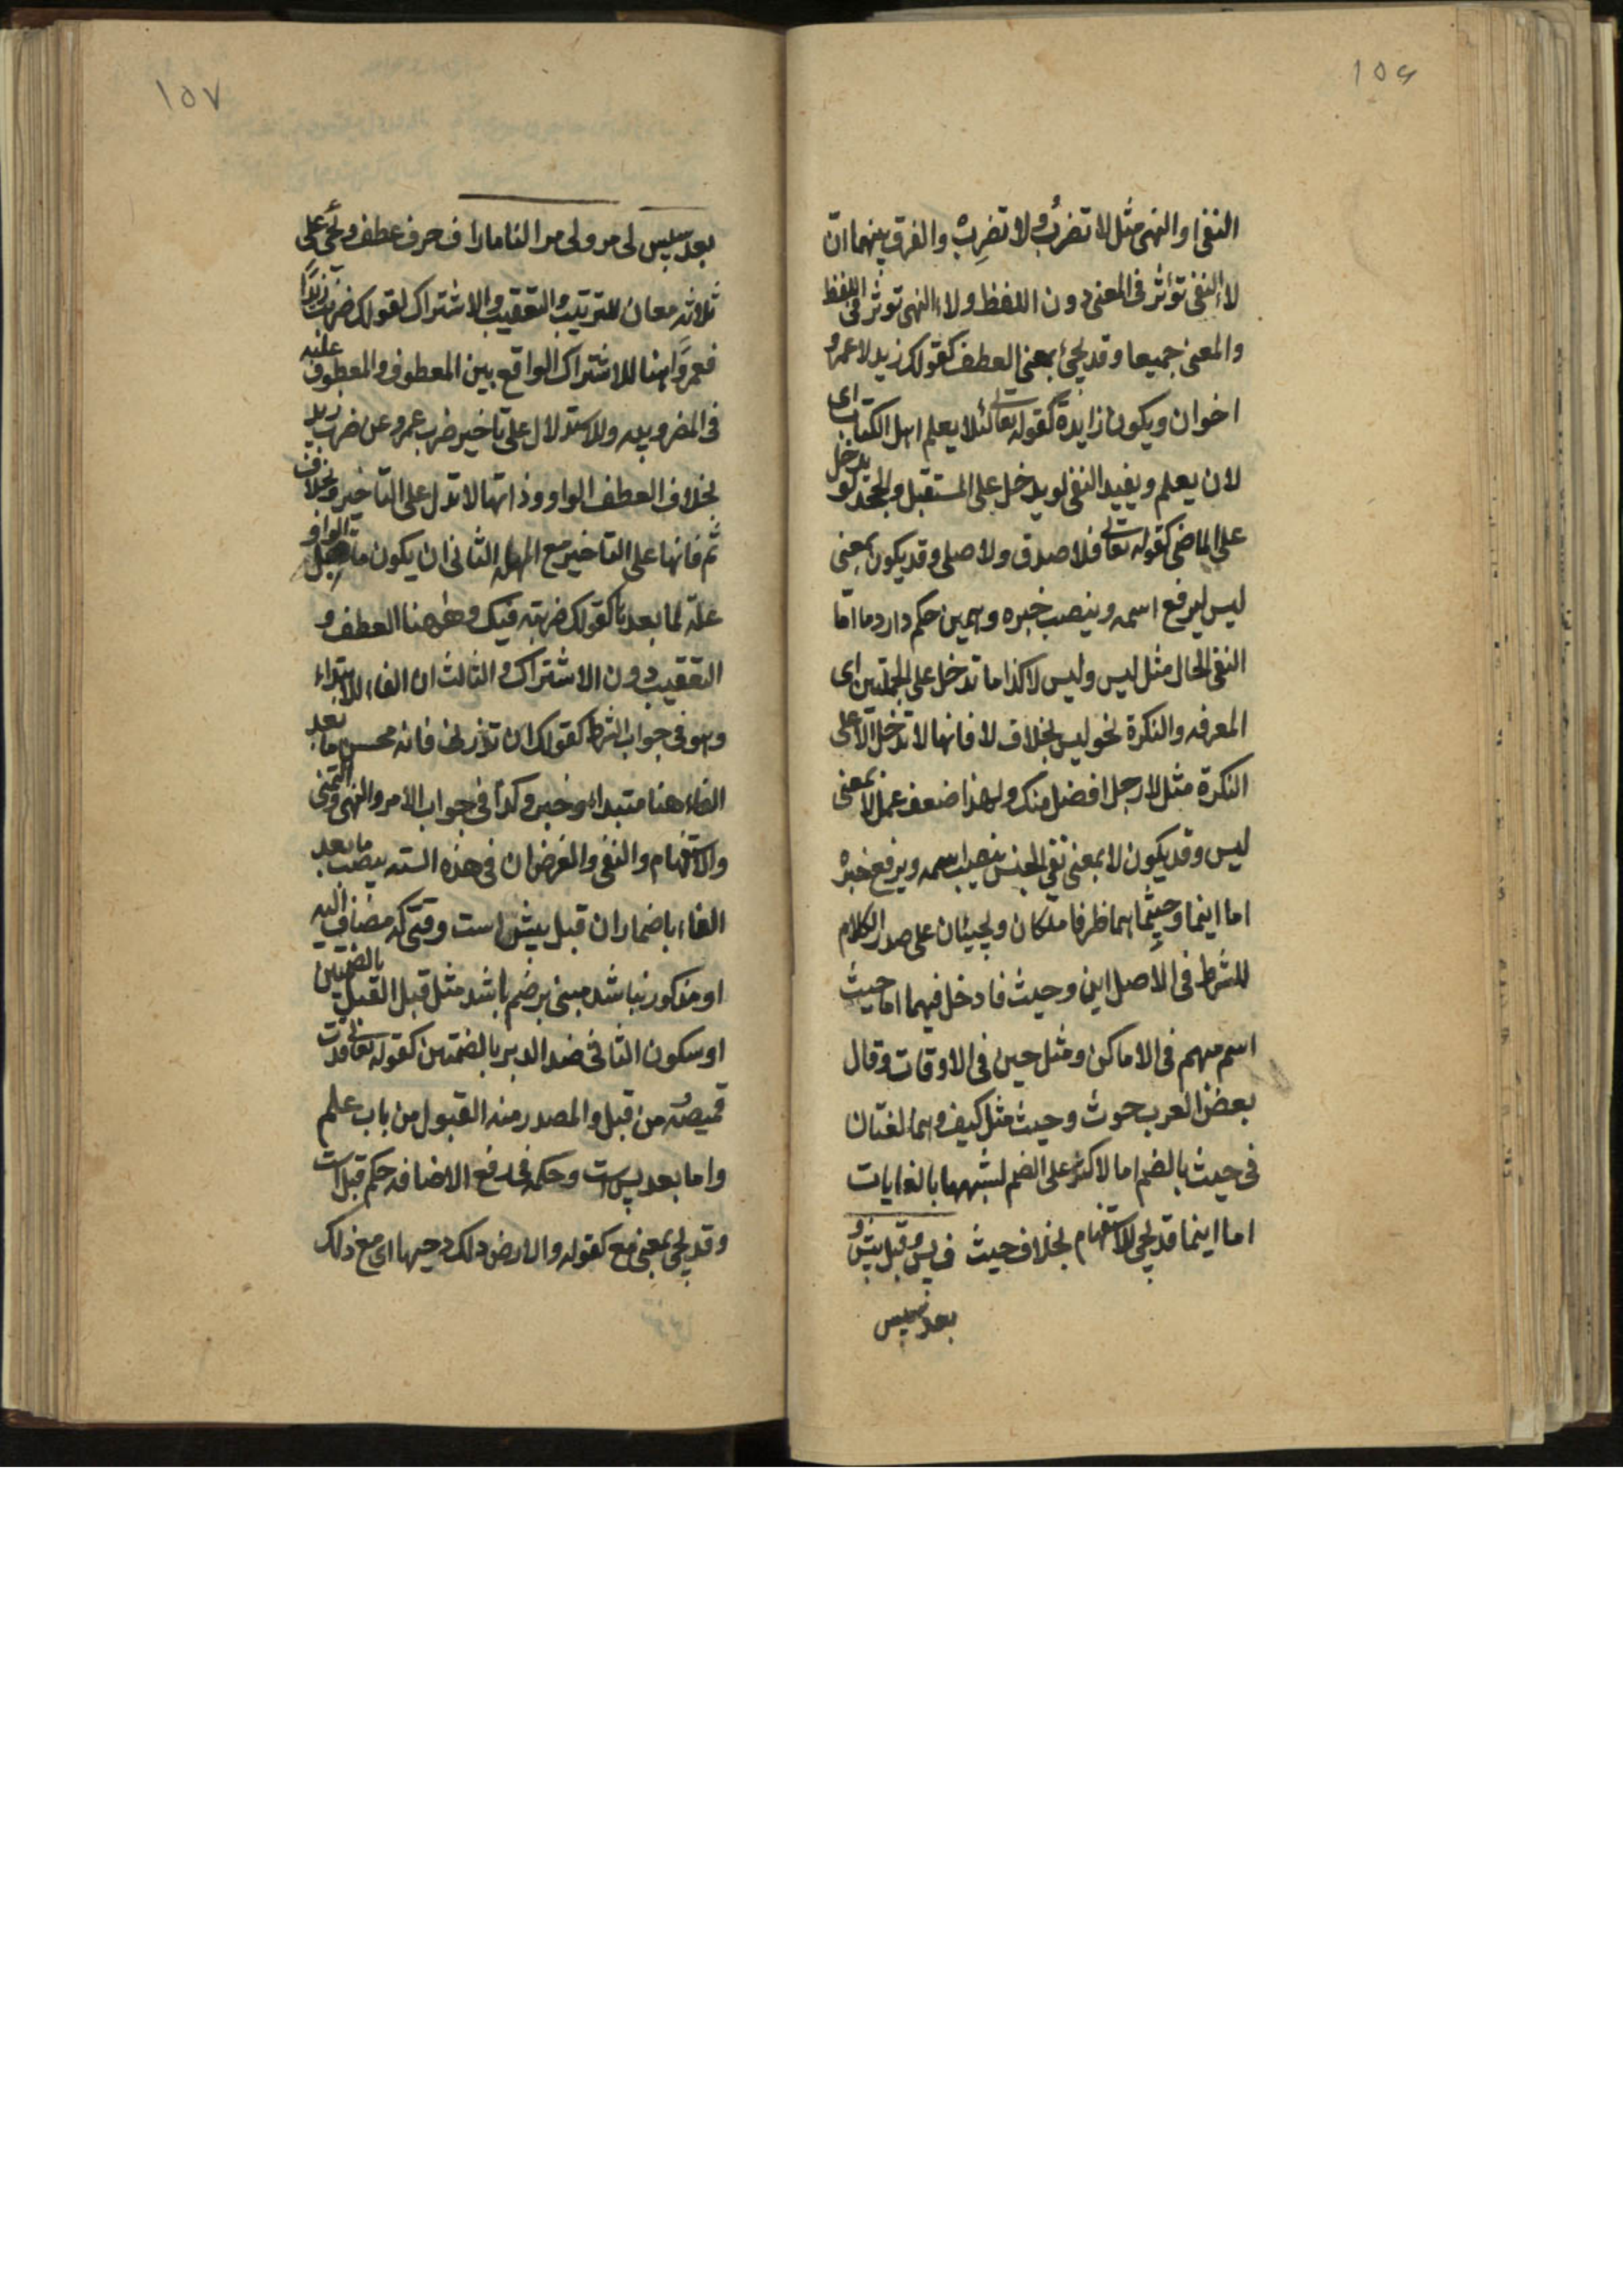 ١٥٦
النفی او النهی مثل لا تضربُ ولا تضرِبْ والفرق بینهما انّ
لاء النفی تؤثر فی المعنی دون اللفظ ولاء النهی توثر فی اللفظ
والمعنی جمیعا وقد یجئ بمعنی العطف کقولک زید لا عمرو
اخوان ویکون زایدة کقوله تعالی لئلا یعلم اهل الکتاب ای
لان یعلم ویفید النفی لو یدخل علی المستقبل والجحد لو یدخل
علی الماضی کقوله تعالی فلا صدق ولا صلی وقد یکون بمعنی
لیس لیرفع اسمه وینصب خبره وهمین حکم دارد ما امّا
النفی الحال مثل لیس ولیس لا کذا ما تدخل علی الجملتین ای
المعرفه والنکرة نحو لیس بخلاف لا فانها لا تدخل الّا علی
النکرة مثل لا رجل افضل منک ولهذا ضعف عمل لا بمعنی
لیس وقد یکون لا بمعنی نفی الجنس ینصب اسمه ویرفع خبره
اما اینما وحیثما هما ظرفا مکان ویجیئان علی صدر الکلام
للشرط فی الاصل این وحیث فادخل فیهما اما حیث
اسم مبهم فی الاماکن ومثل حین فی الاوقات وقال
بعض العرب حوث وحیث مثل کیف وهما لغتان
فی حیث بالضم اما لاکثر علی الضم لشبهها بالغایات
اما اینما قد یجی للاستفهام بخلاف حیث ف پس و قبل پیش و
بعد سپس
١٥٧
بعد سپس لی مر ولی مر النا مارا ف حرف عطف ویجئ علی
ثلاثه معان للترتیب والتعقیب والاشتراک کقولک ضربت زیدًا
فعمروًا هنا للاشتراک الواقع بین المعطوف والمعطوف علیه
فی المضروبیه وللاستدلال علی تاخیر ضرب عمرو عن ضرب زید
بخلاف العطف الواو وذاتها لا تدل علی التاخیر وبخلاف
ثم فانها علی التاخیر مع المهلة الثانی ان یکون ما قبل
علة لما بعدها کقولک ضربته فبکی وهی هنا العطف و
التعقیب دون الاشتراک والثالث ان الفاء للابتداء
وهو فی جواب الشرط کقولک ان تزرنی فانه محسن ما بعد
الفاء هنا مبتداء وخبر وکذا فی جواب الامر والنهی والتمنی
والاستفهام والنفی والغرض ان فی هذه السته ینصب ما بعد
الفاء باضمار ان قبل پیش است وقتی که مضاف الیه
او مذکور نباشد مبنی بر ضم باشد مثل قبل القبل بالضمتین
او سکون الثانی ضد الدبر بالضمتین کقوله تعالی قدت
قمیصه من قبل والمصدر منه القبول من باب علم
واما بعد پس است وحکمه فی رفع الاضافه حکم قبل است
وقد یجئ بمعنی مع کقوله والارض بعد ذلک دحیها ای مع ذلک